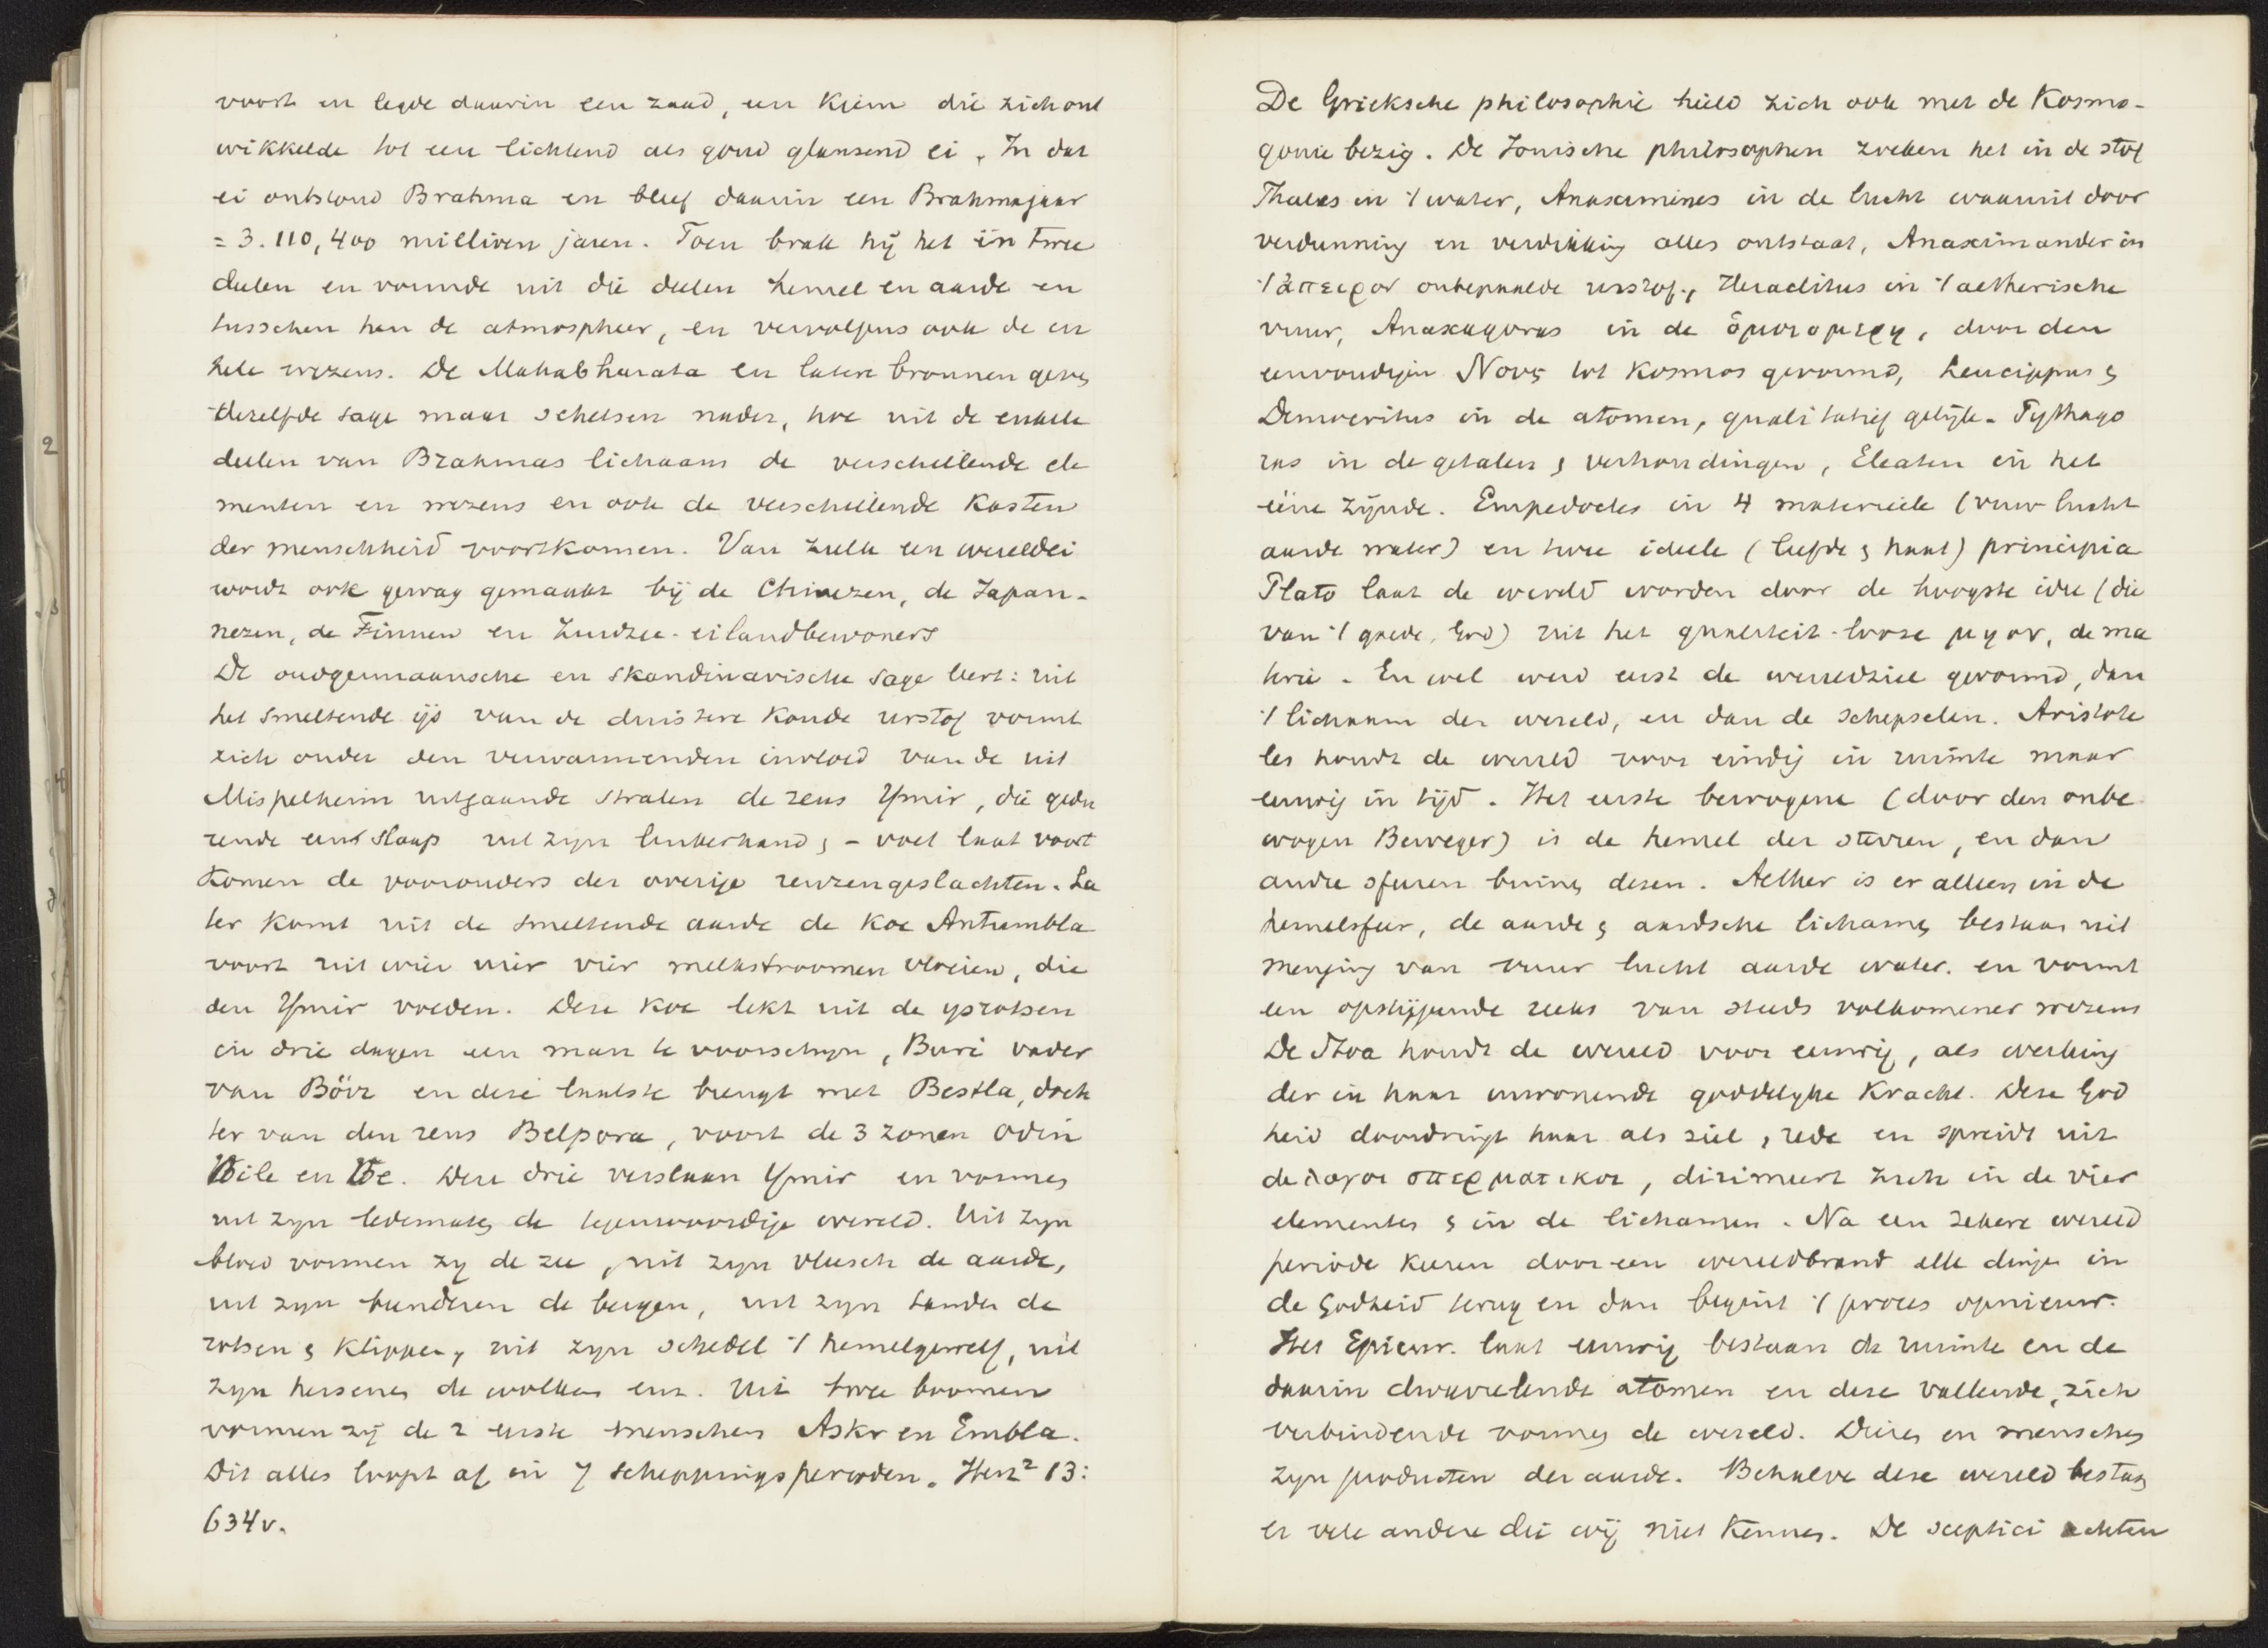 voort en legde daarin een zaad, een Kiem die zich ont
wikkelde tot een lichtend als goud glanzend ei. In dat
ei ontstond Brahma en bleef daarin een Brahmajaar
= 3.110,400 millioen jaren. Toen brak hij het in twee
deelen en vormde uit die deelen hemel en aarde en
tusschen hen de atmospheer, en vervolgens ook de en
kele wezens. De Mahabharata en latere bronnen geven
dezelfde sage maar schetsen nader, hoe uit de enkele
deelen van Brahmas lichaam de verschillende ele
menten en wezens en ook de verschillende Kasten
der menschheid voortkomen. Van zulk een wereldei
wordt ook gewag gemaakt bij de Chineezen, de Japan-
nezen, de Finnen en Zuidzee-eilandbewoners
De oudgermaansche en skandinavische sage leert: uit
het smeltende ijs van de duistere Koude urstof vormt
zich onder den verwarmenden invloed van de uit
Mispelheim uitgaande stralen de reus Ymir, die gedu
rende een slaap uit zyn linkerhand & - voet laat voort
Komen de voorouders der overige reuzengeslachten. La
ter komt uit de smeltende aarde de Koe Antumbla
voort uit wier uier vier melkstroomen vloeien, die
den Ymir voeden. Deze Koe lekt uit de ysrotsen
in drie dagen een man te voorschyn, Buri vader
van Börr en deze laatste brengt met Bestla, doch
ter van den reus Belpora, voort de 3 zonen Odin
Vile en Ve. Deze drie verslaan Ymir en vormen
uit zyn ledematen de tegenwoordige wereld. Uit zyn
bloed vormen zy de zee, uit zyn vleesch de aarde,
uit zyn beenderen de bergen, uit zyn tanden de
rotsen & Klippen, uit zyn schedel 't hemelgewelf, uit
zyn hersenen de wolken enz. Uit twee boomen
vormen zij de 2 eerste menschen Askr en Embla.
Dit alles loopt af in 7 scheppingsperioden. Herz² 13:
634v.
De Grieksche philosophie hield zich ook met de Kosmo-
gonie bezig. De Ionische philosophen zoeken het in de stof
Thales in 't water, Anaximines in de lucht waaruit door
verdunning en verdikking alles ontstaat, Anaximander in
't ἀπειρον onbepaalde urstof, Heraclitus in 't aetherische
vuur, Anaxagoras in de ὁμοιομερη, door den
eenvoudigen Νους tot Kosmos gevormd, Leucippus &
Democritus in de atomen, qualitatief gelijk. Pythago
ras in de getalen & verhoudingen, Eleaten in het
ééne zijnde. Empedocles in 4 materieele (vuur lucht
aarde water) en twee ideele (liefde & haat) principia
Plato laat de wereld worden door de hoogste idee (die
van 't goede, God) uit het qualiteit-looze μη ον, de ma
terie. En wel werd eerst de wereldziel gevormd, dan
't lichaam der wereld, en dan de schepselen. Aristote
les houdt de wereld voor eindig in ruimte maar
eeuwig in tijd. Het eerste bewogene (door den onbe
wogen Beweger) is de hemel der sterren, en dan
andre sferen binnen dezen. Aether is er alleen in de
hemelsfeer, de aarde & aardsche lichamen bestaan uit
menging van vuur lucht aarde water. en vormt
een opstijgende reeks van steeds volkomener wezens
De Stoa houdt de wereld voor eeuwig, als werking
der in haar inwonende goddelyke Kracht. Deze God
heid doordringt haar als ziel, rede en spreidt uit
de λογοι σπερματικοι, dirimeert zich in de vier
elementen & in de lichamen. Na een zekere wereld
periode keeren door een wereldbrand alle dingen in
de Godheid terug en dan begint 't proces opnieuw.
Het Epicur. laat eeuwig bestaan de ruimte en de
daarin dwarrelende atomen en deze vallende, zich
verbindende vormen de wereld. Dieren en menschen
zyn producten der aarde. Behalve deze wereld bestaan
er vele andere die wij niet Kennen. De sceptici achten